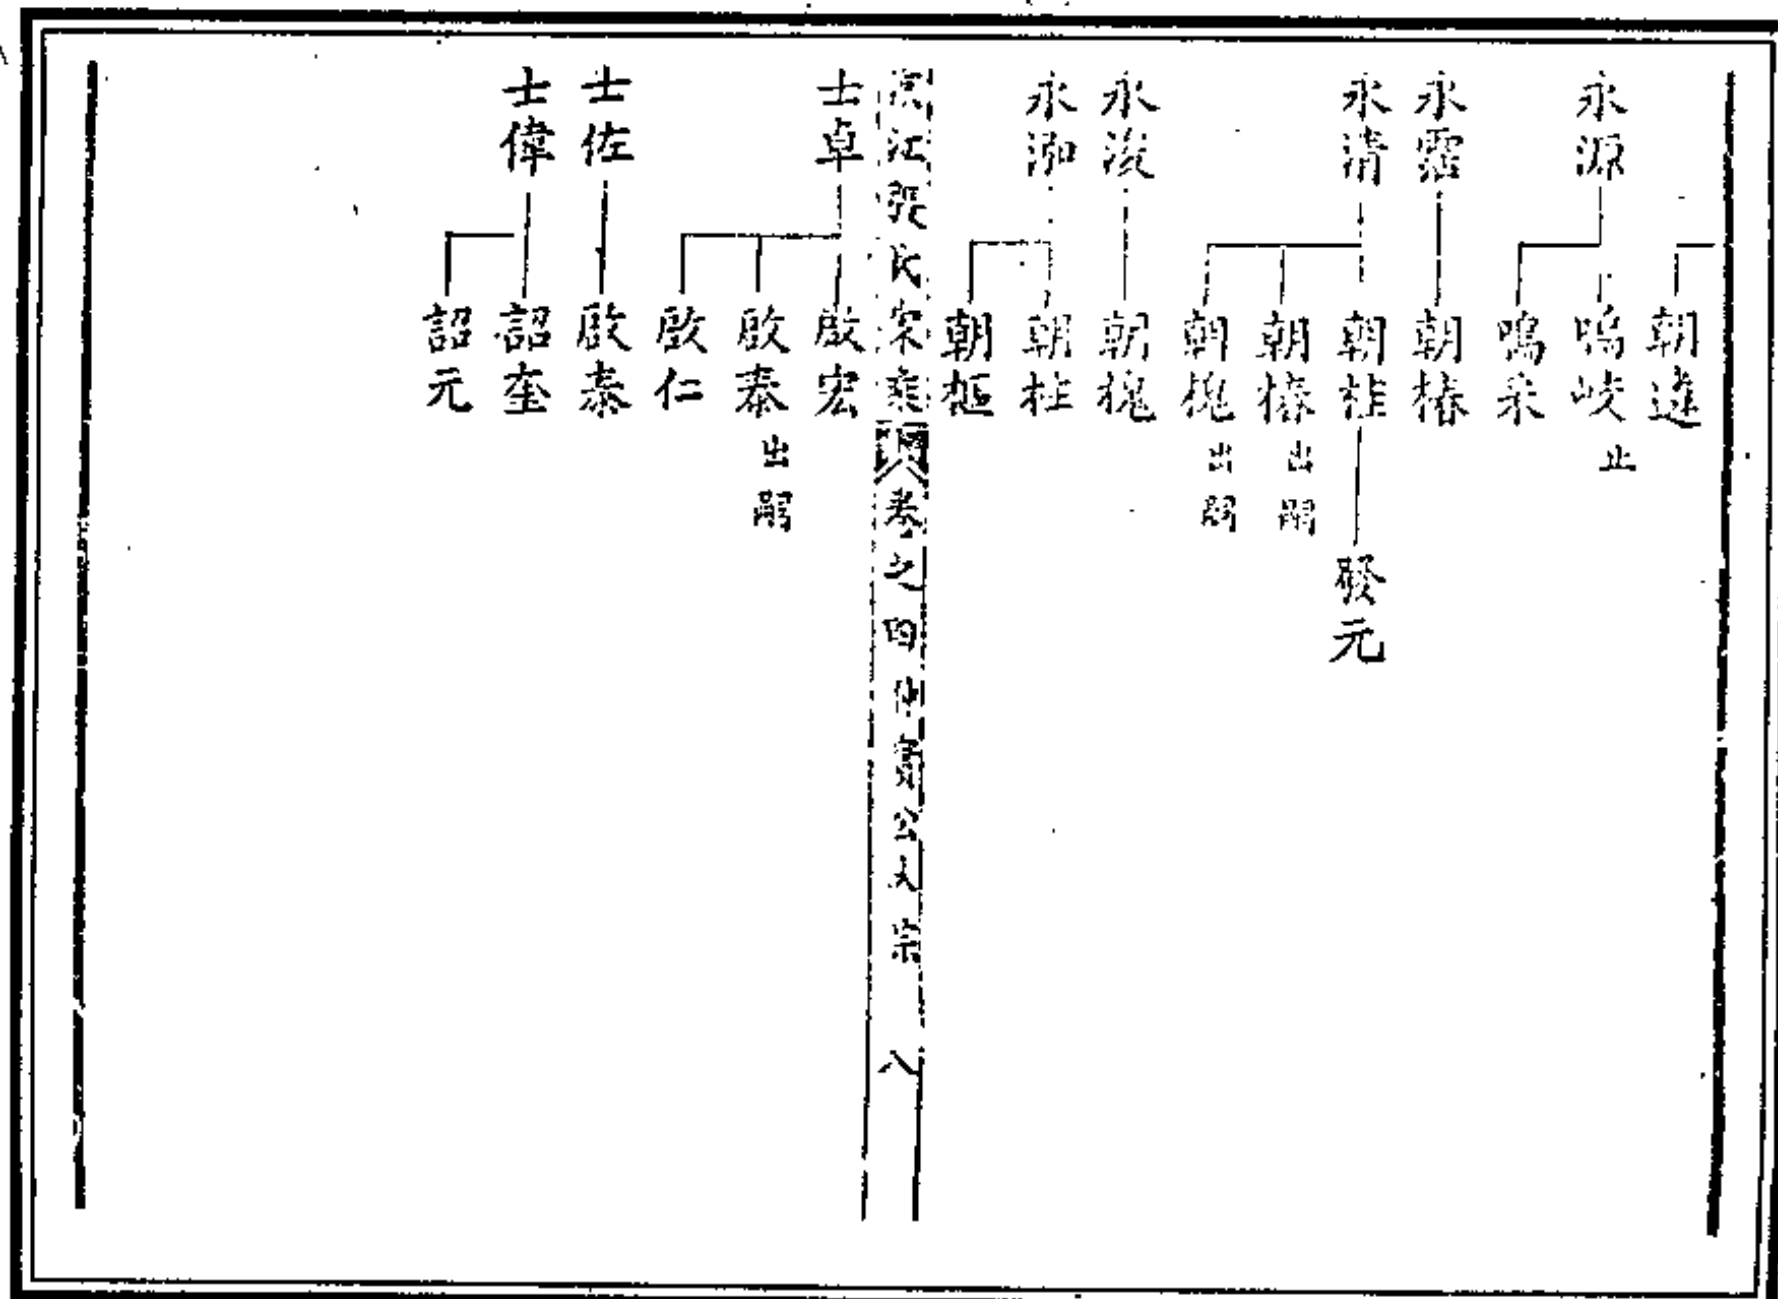 朝進
永源
鳴岐 止
鳴采
永霑
朝椿
永清
朝桂
發元
朝椿 出嗣
朝槐 出嗣
永浚
朝槐
永泖
朝柱
朝樞
江張氏宗乘 卷之四 公大宗 八
士卓
啟宏
啟泰 出嗣
啟仁
士佐
啟泰
士偉
詔奎
詔元